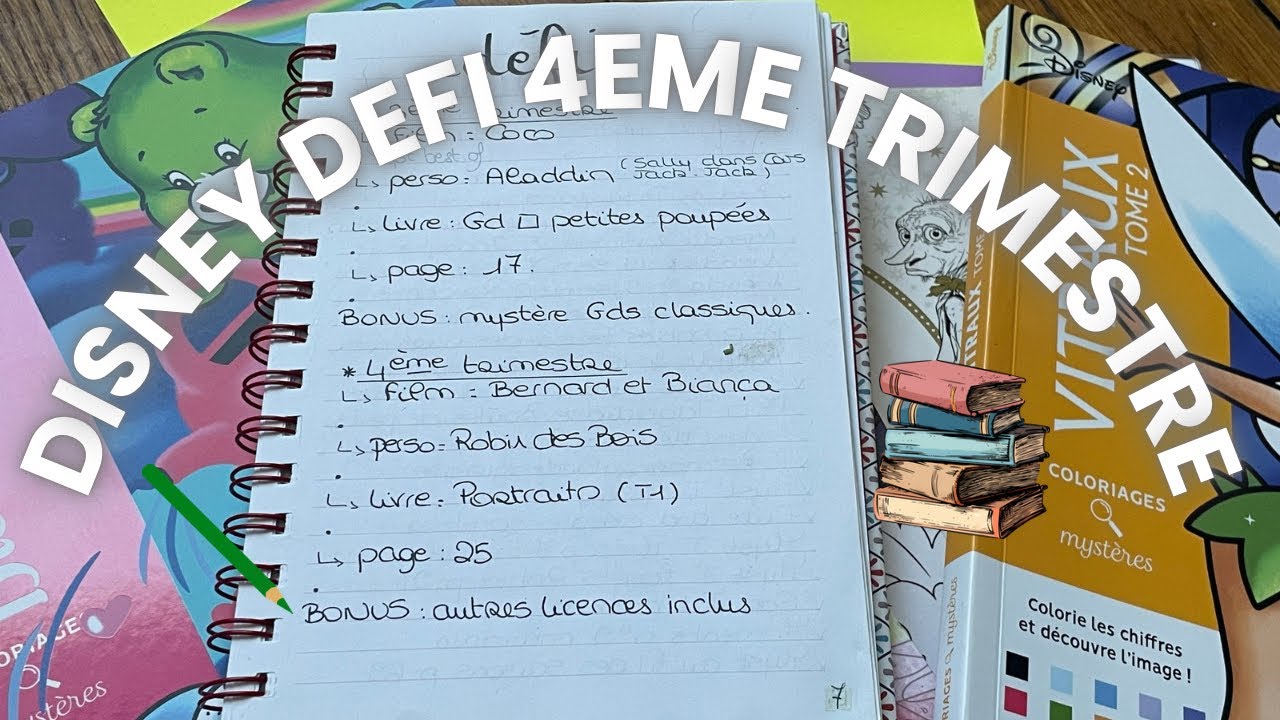 DISNEY DEFI 4EME TRIMESTRE
défi
trimestre
Film = Coco
best of
↳ perso = Aladdin (Sally dans Cars
Jack-Jack)
↳ Livre : Gd □ petites poupées
↳ page : 17.
BONUS : mystère Gds classiques.
* 4ème trimestre
↳ Film = Bernard et Biança
↳ perso = Robin des Bois
↳ Livre = Portraits (T1)
↳ page : 25
BONUS : autres licences inclus
7
Disney
VITRAUX
TOME 2
COLORIAGES
mystères
Colorie les chiffres
et découvre l'image !
mystères